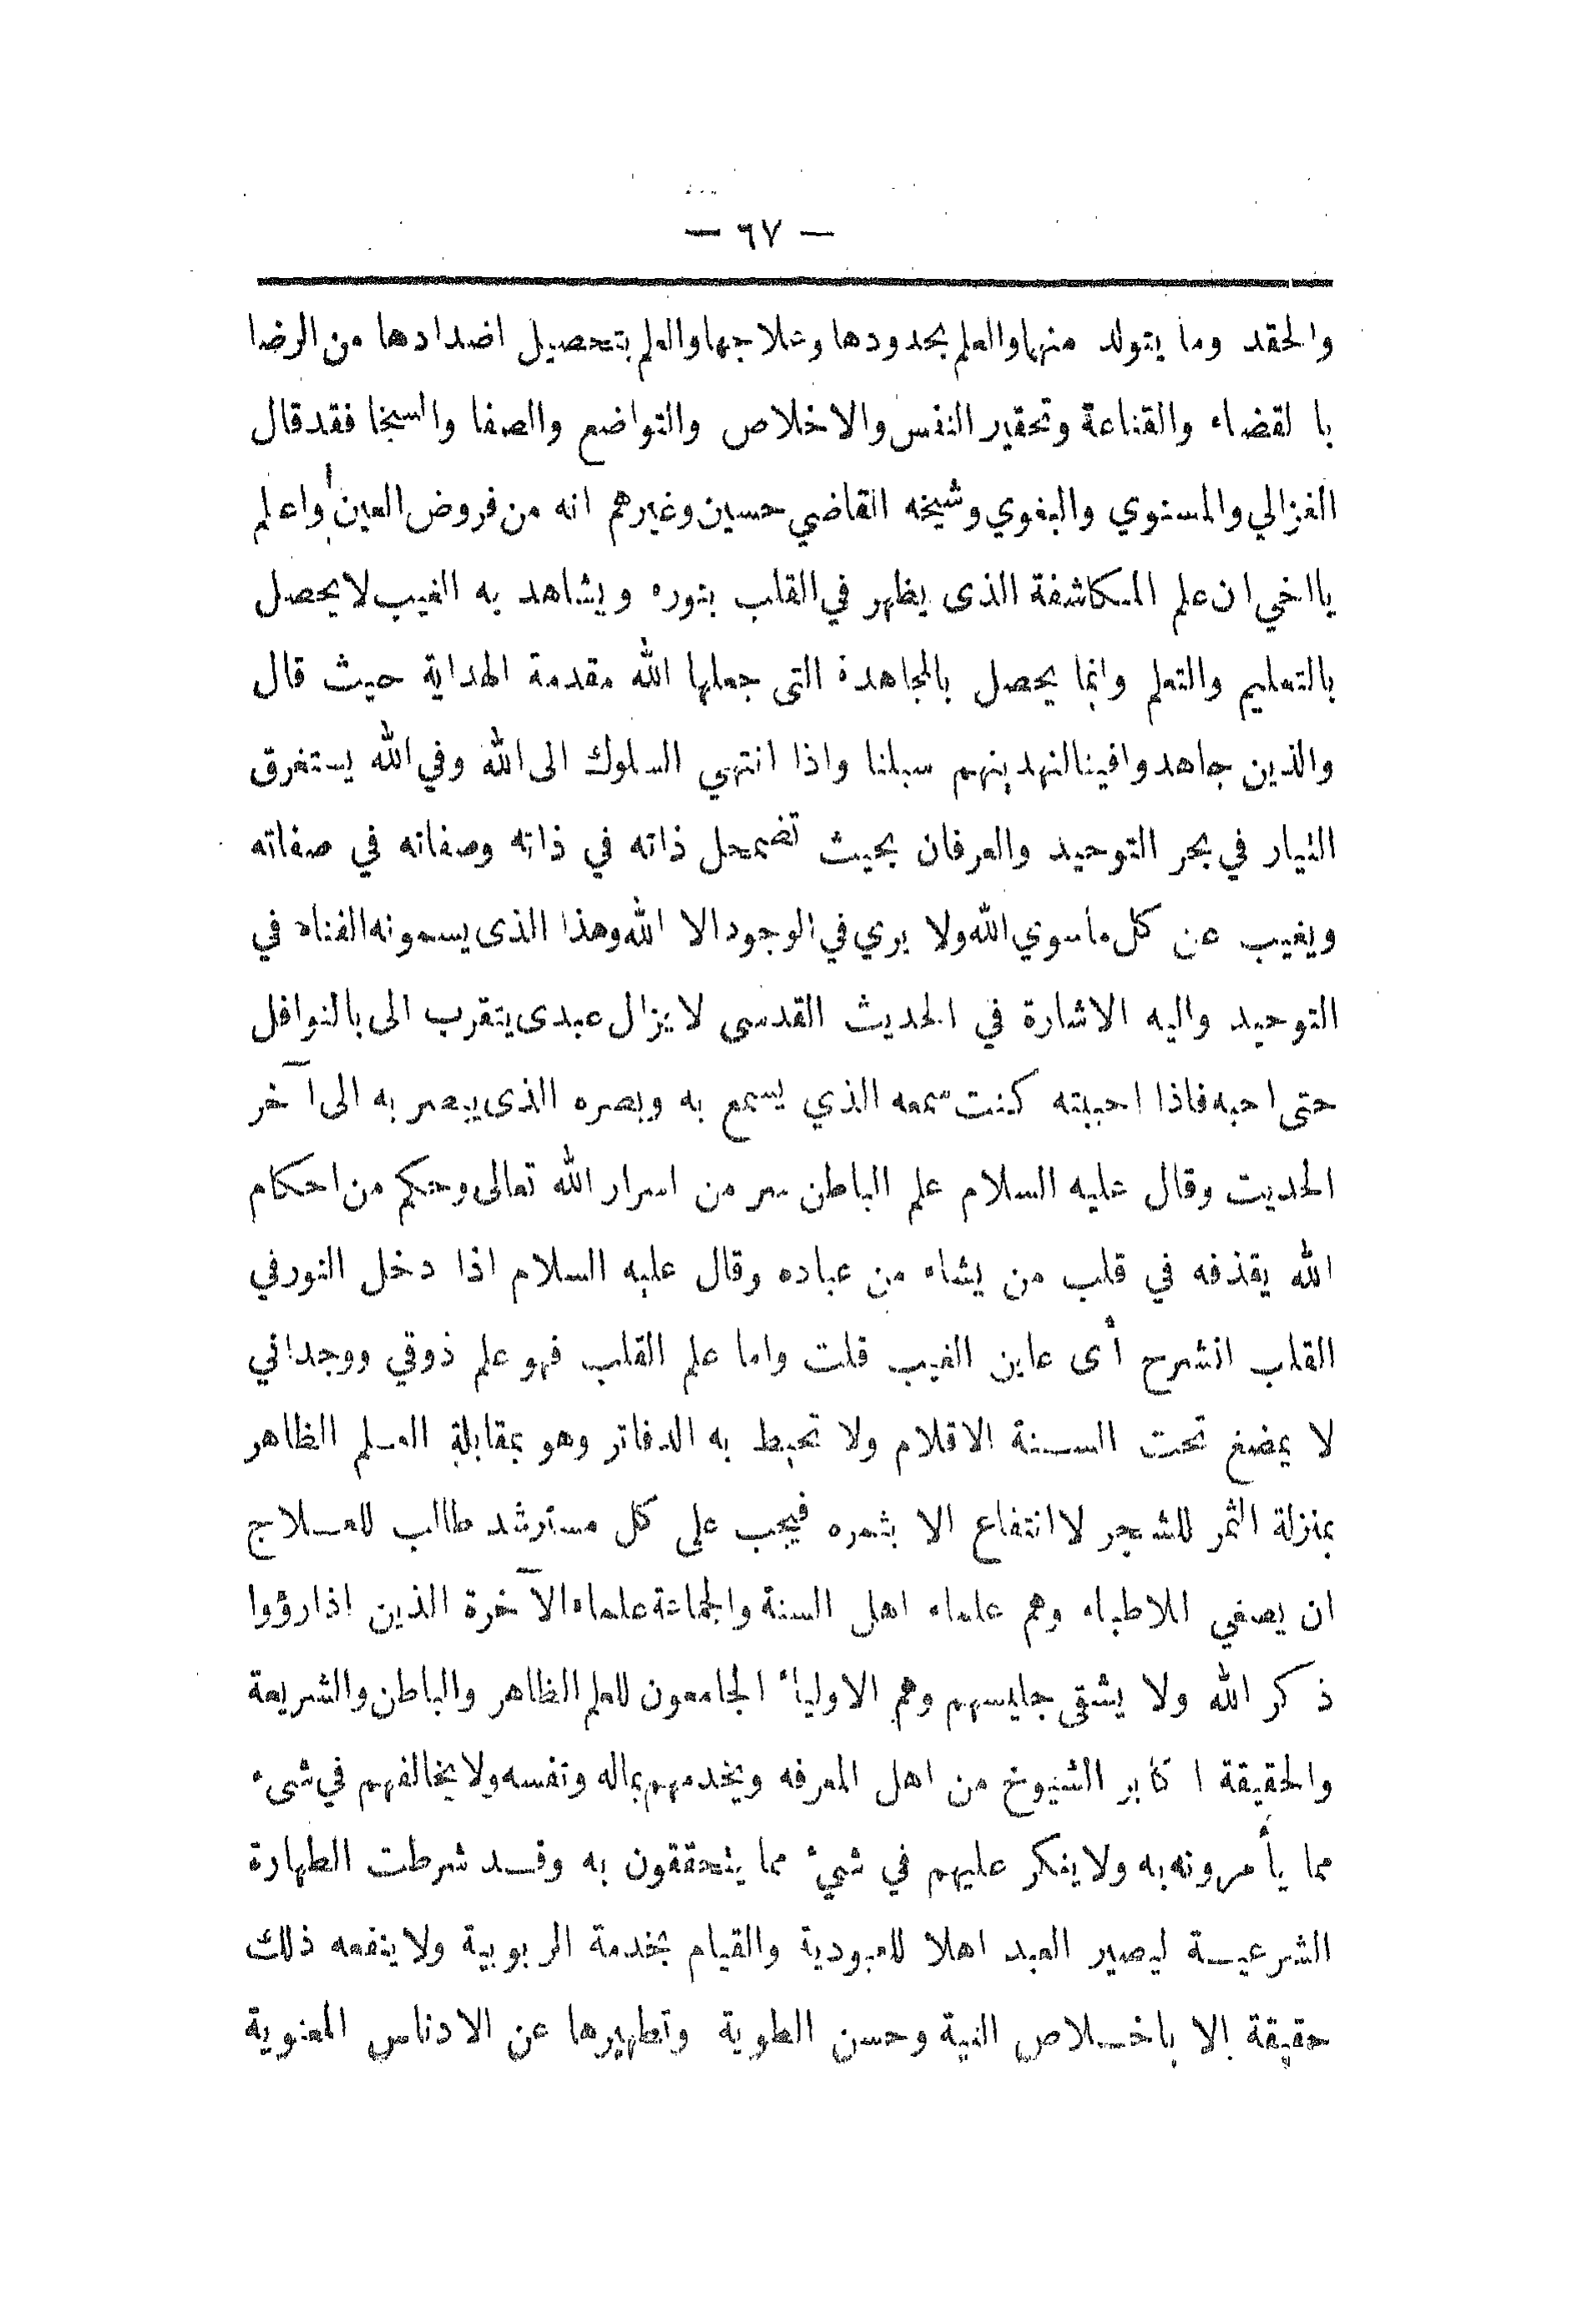 — ٦٧ —
والحقد وما يتولد منها والعلم بحدودها وعلاجها والعلم بتحصيل اضدادها من الرضا
با لقضاء والقناعة وتحقير النفس والاخلاص والتواضع والصفا والسخا فقد قال
الغزالي والمسنوي والبغوي وشيخه القاضي حسين وغيرهم انه من فروض العين واعلم
يااخي ان علم المكاشفة الذى يظهر في القلب بنوره ويشاهد به الغيب لا يحصل
بالتعليم والتعلم وانما يحصل بالمجاهدة التى جعلها الله مقدمة الهداية حيث قال
والذين جاهدوا فينا لنهدينهم سبلنا واذا انتهي السلوك الى الله وفي الله يستغرق
التيار في بحر التوحيد والعرفان بحيث تضمحل ذاته في ذاته وصفاته في صفاته
ويغيب عن كل ماسوي الله ولا يري في الوجود الا الله وهذا الذى يسمونه الفناء في
التوحيد واليه الاشارة في الحديث القدسى لا يزال عبدى يتقرب الى بالنوافل
حتى احبه فاذا احببته كنت سمعه الذي يسمع به وبصره الذى يبصر به الى آخر
الحديت وقال عليه السلام علم الباطن سر من اسرار الله تعالى وحكم من احكام
الله يقذفه في قلب من يشاء من عباده وقال عليه السلام اذا دخل النور في
القلب انشرح أى عاين الغيب قلت واما علم القلب فهو علم ذوقي ووجداني
لا يمضغ تحت السنة الاقلام ولا تحيط به الدفاتر وهو بمقابلة العلم الظاهر
بمنزلة الثمر للشجر لا انتفاع الا بثمره فيجب على كل مسترشد طالب للعلاج
ان يصغي للاطباء وهم علماء اهل السنة والجماعة علماء الآخرة الذين اذا رؤوا
ذكر الله ولا يشقى جليسهم وهم الاولياء الجامعون للعلم الظاهر والباطن والشريعة
والحقيقة اكابر الشيوخ من اهل المعرفه ويخدمهم بماله ونفسه ولا يخالفهم في شىء
مما يأمرونه به ولا ينكر عليهم في شيء مما يتحققون به وقد شرطت الطهارة
الشرعية ليصير العبد اهلا للعبودية والقيام بخدمة الربوبية ولا ينفعه ذلك
حقيقة إلا باخلاص النية وحسن الطوية وتطهيرها عن الادناس المعنوية